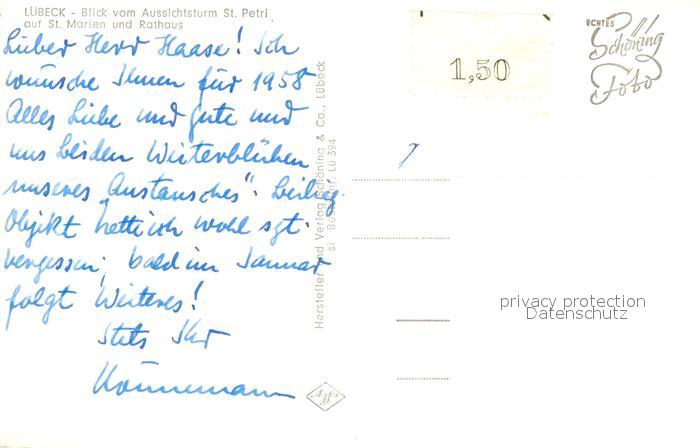 LÜBECK - Blick vom Aussichtsturm St. Petri
auf St. Marien und Rathaus
Lieber Herr Haase! Ich
wünsche Ihnen für 1958
Alles Liebe und Gute und
uns beiden Weiterblühen
unseres „Austausches". Beilieg.
Objekt hette ich wohl sgt.
vergessen; bald im Januar
folgt Weiteres!
Stets Ihr
Hersteller und Verlag Schöning & Co., Lübeck
LÜ 394
1,50
ECHTES
Schöning
Foto
privacy protection
Datenschutz